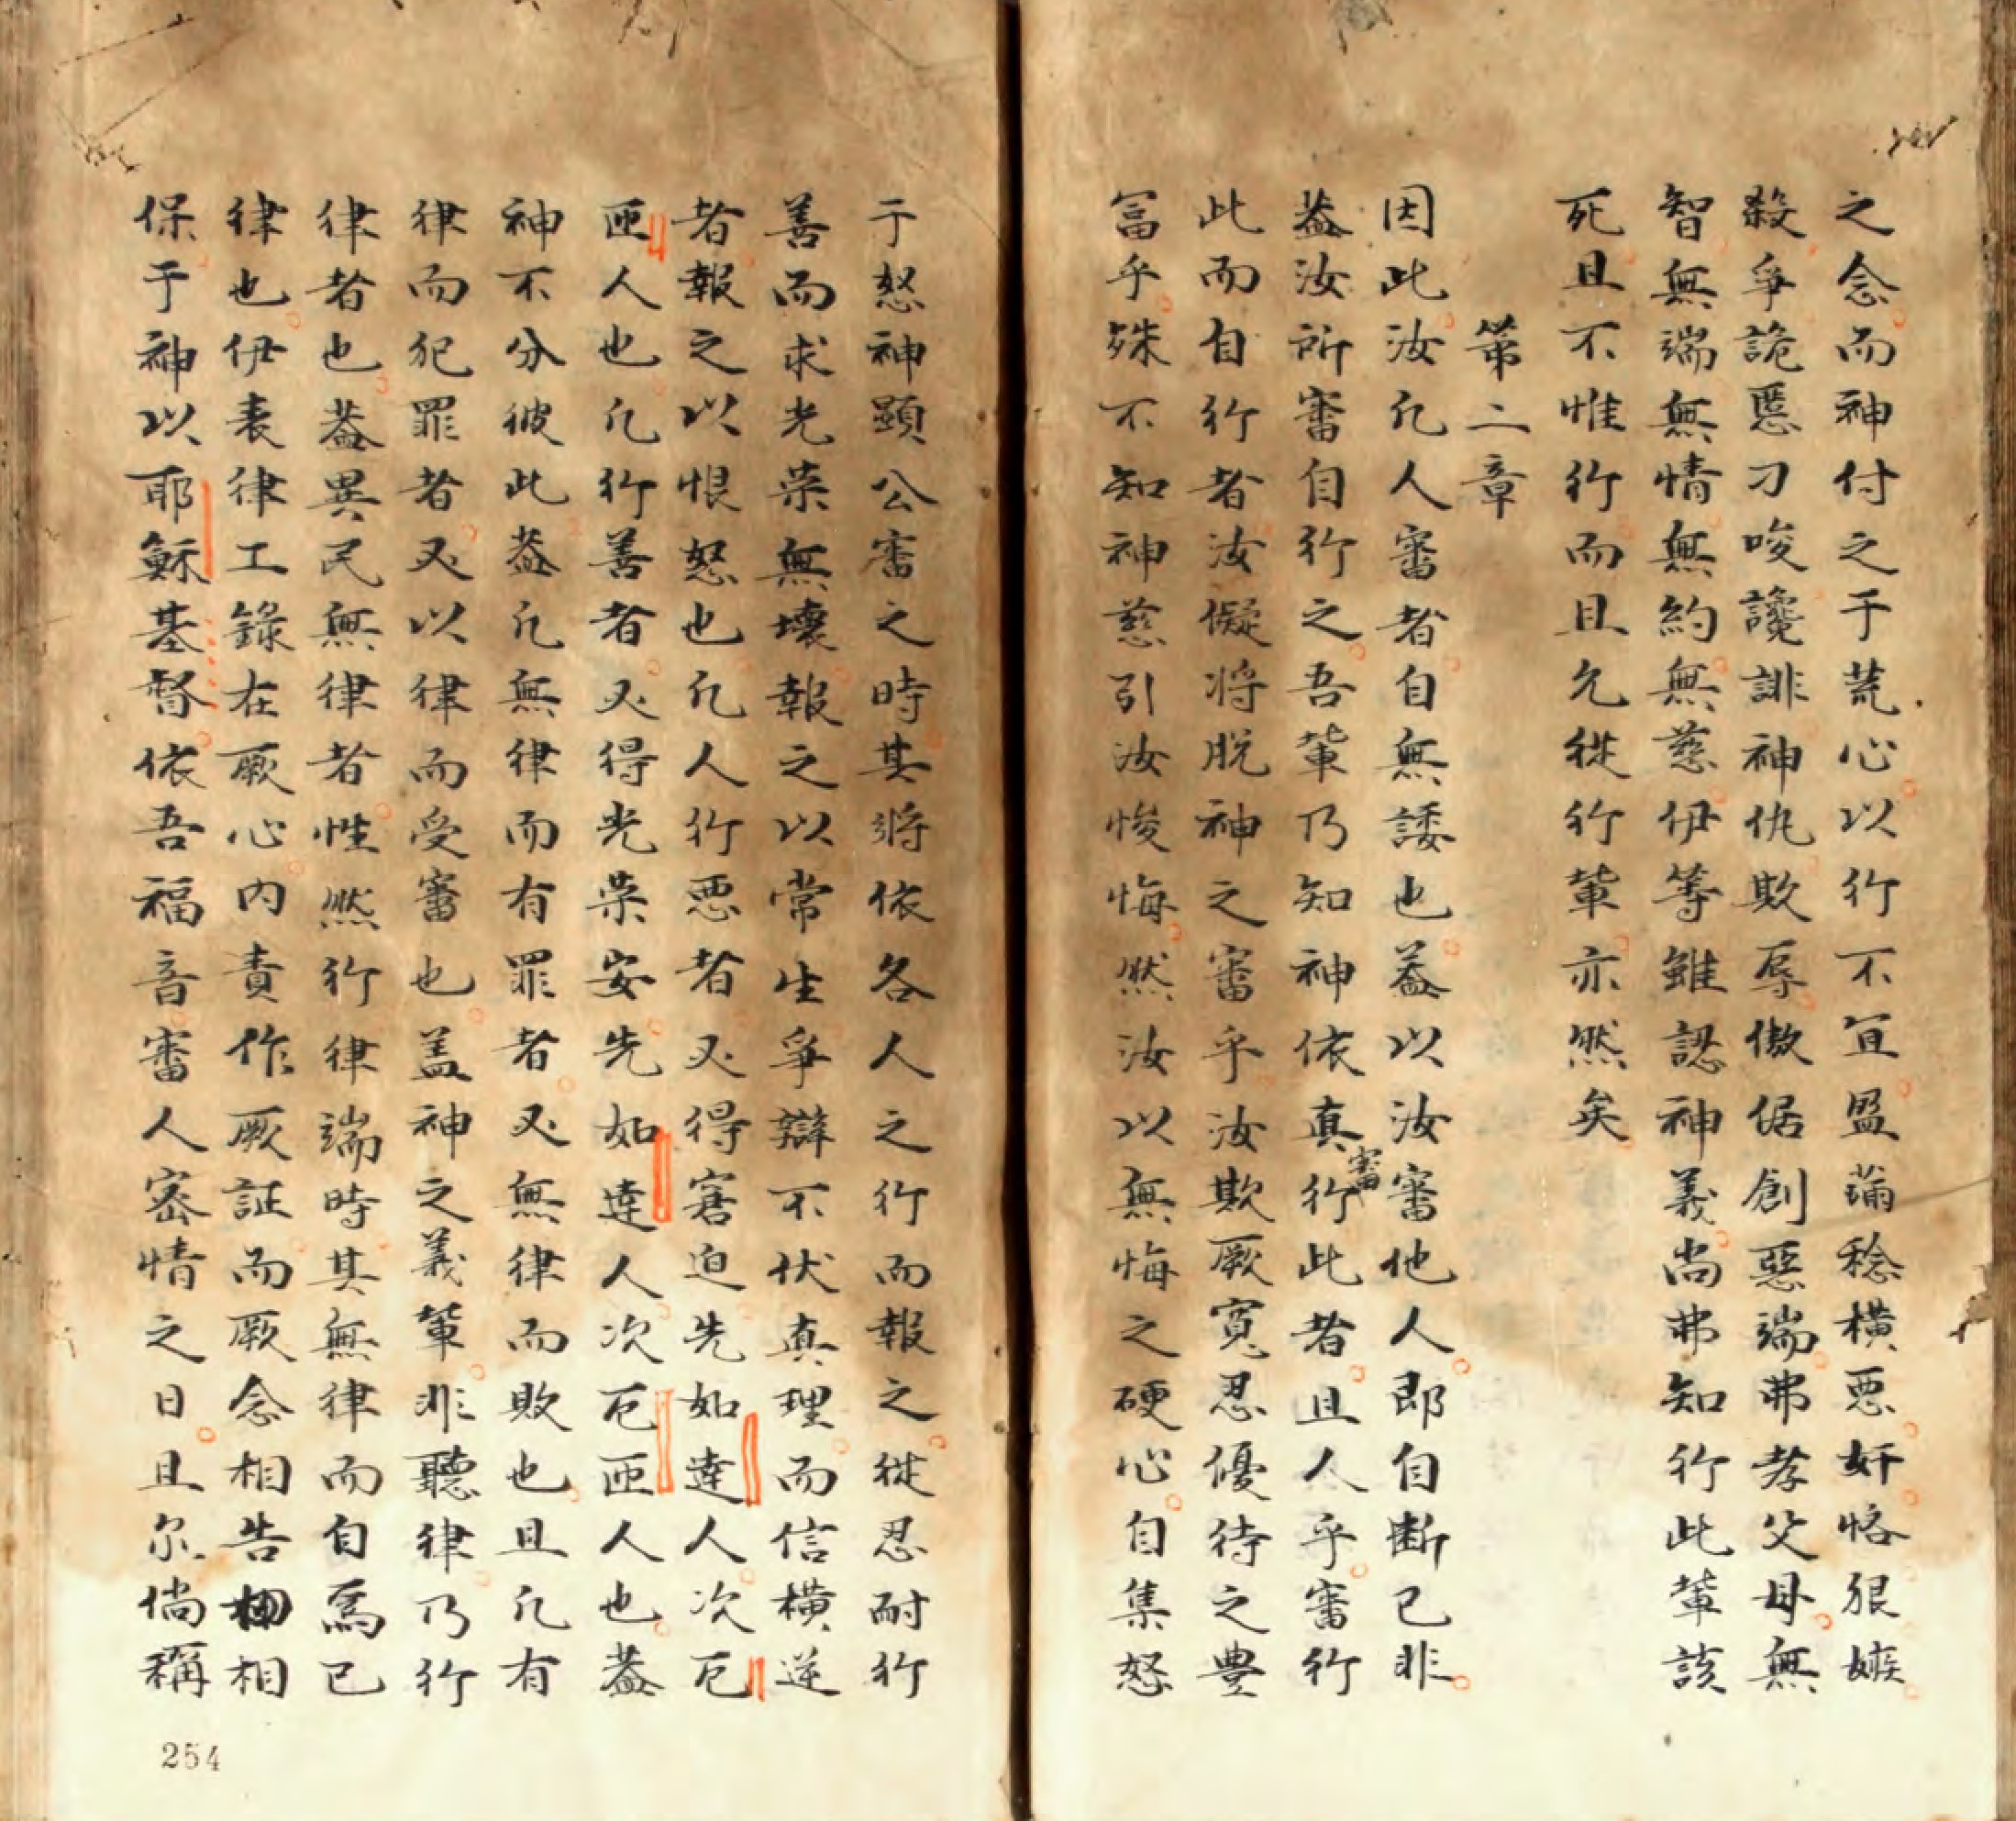 之念而神付之于荒心以行不宜盈滿稔橫悪奸恡狠嫉
殺爭詭悪刁唆讒誹神仇欺辱傲倨創惡端弗孝父母無
智無端無情無約無慈伊等雖認神義尚弗知行此輩該
死且不惟行而且允従行輩亦然矣
第二章
因此汝凢人審者自無諉也葢以汝審他人即自斷已非
葢汝所審自行之吾輩乃知神依真審行此者且人乎審行
此而自行者汝儗将脱神之審乎汝欺厥寛忍優待之豊
冨乎殊不知神慈引汝悛悔然汝以無悔之硬心自集怒
于怒神顕公審之時其将依各人之行而報之従忍耐行
善而求光荣無壊報之以常生爭辯不伏真理而信橫逆
者報之以恨怒也凢人行悪者必得窘迫先如達人次厄
匝人也凢行善者必得光荣安先如達人次厄匝人也葢
神不分彼此葢凢無律而有罪者必無律而敗也且凢有
律而犯罪者必以律而受審也盖神之義輩非聽律乃行
律者也葢異民無律者性然行律端時其無律而自爲已
律也伊表律工錄在厥心内責作厥証而厥念相告相
保于神以耶穌基督依吾福音審人宻情之日且尔倘稱
254